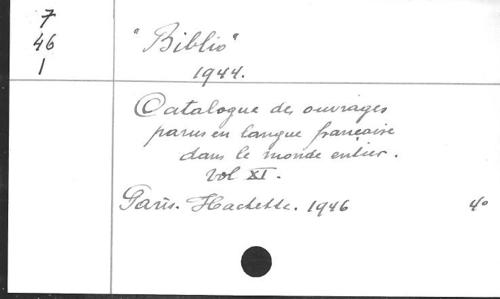 7
46
1
"Biblio"
1944.
Catalogue des ouvrages
parus en langue française
dans le monde entier.
Vol XI.
Paris. Hachette. 1946 4°